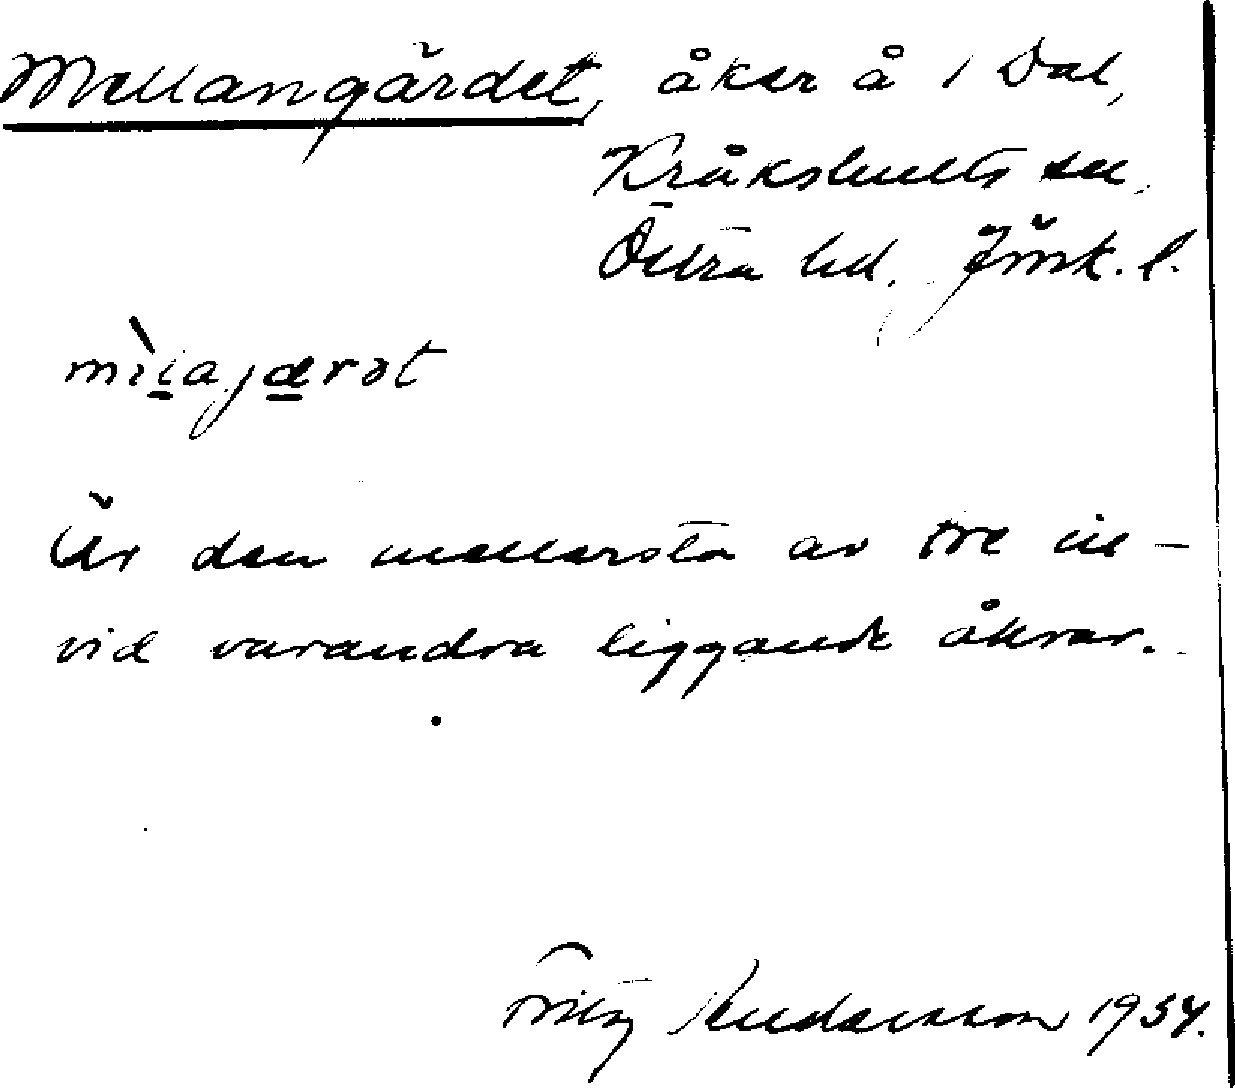 Mellangärdet, åker å 1 Dal,
Kråkshults sn,
Östra hd, Jönk. l.
Är den mellersta av tre in-
vid varandra liggande åkrar.
Fritz 1934.